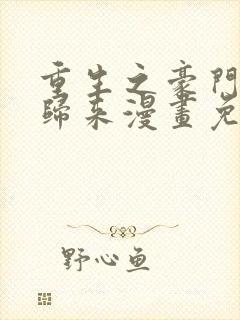 重生之豪門
歸來漫畫免
野心鱼